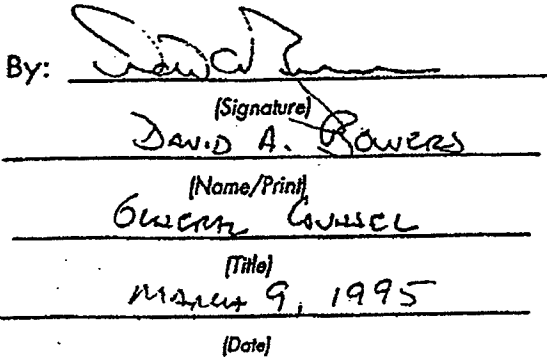 By:
(Signature)
DAVID A. BOWERS
(Name/Print)
GENERAL COUNSEL
(Title)
MARCH 9, 1995
(Date)